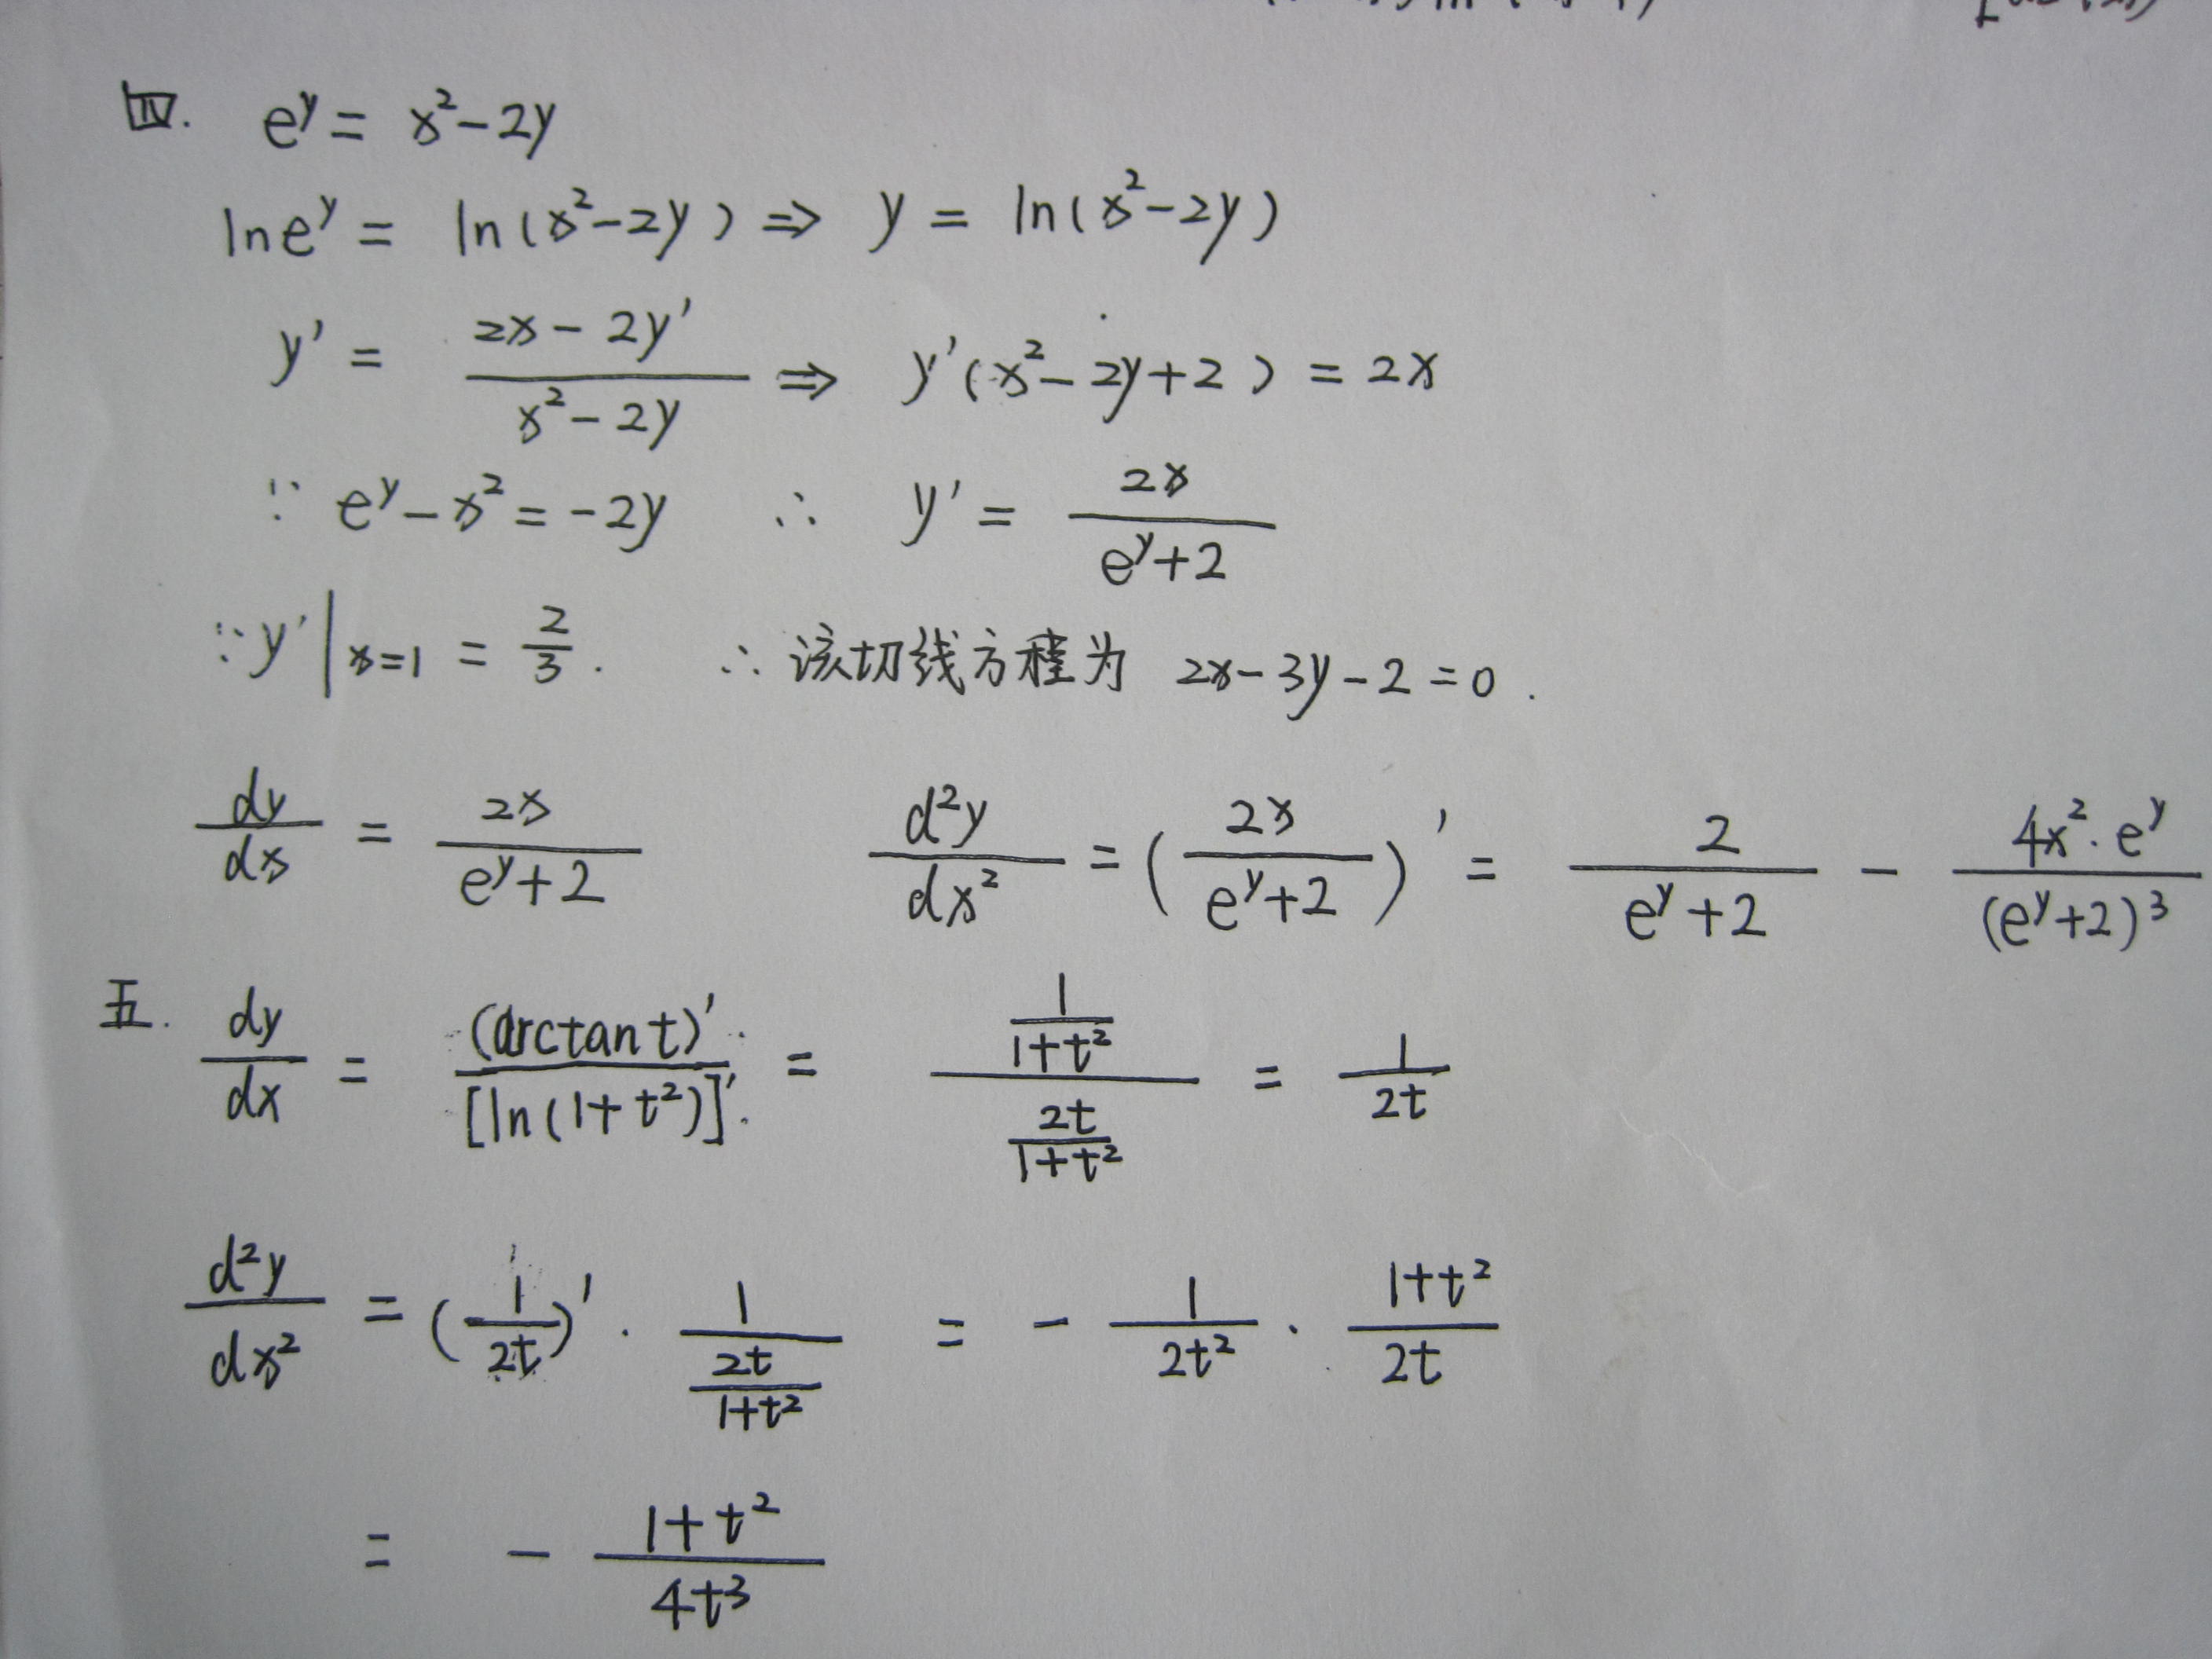 四. e^y = x²-2y
ln e^y = ln(x²-2y) ⇒ y = ln(x²-2y)
y' = (2x-2y')/(x²-2y) ⇒ y'(x²-2y+2) = 2x
∵ e^y-x² = -2y ∴ y' = 2x/(e^y+2)
∵ y'|x=1 = 2/3. ∴ 该切线方程为 2x-3y-2=0.
dy/dx = 2x/(e^y+2) d²y/dx² = (2x/(e^y+2))' = 2/(e^y+2) - 4x²·e^y/(e^y+2)³
五. dy/dx = (arctan t)'/[ln(1+t²)]' = (1/(1+t²))/(2t/(1+t²)) = 1/2t
d²y/dx² = (1/2t)' · 1/(2t/(1+t²)) = - 1/2t² · (1+t²)/2t
= - (1+t²)/4t³